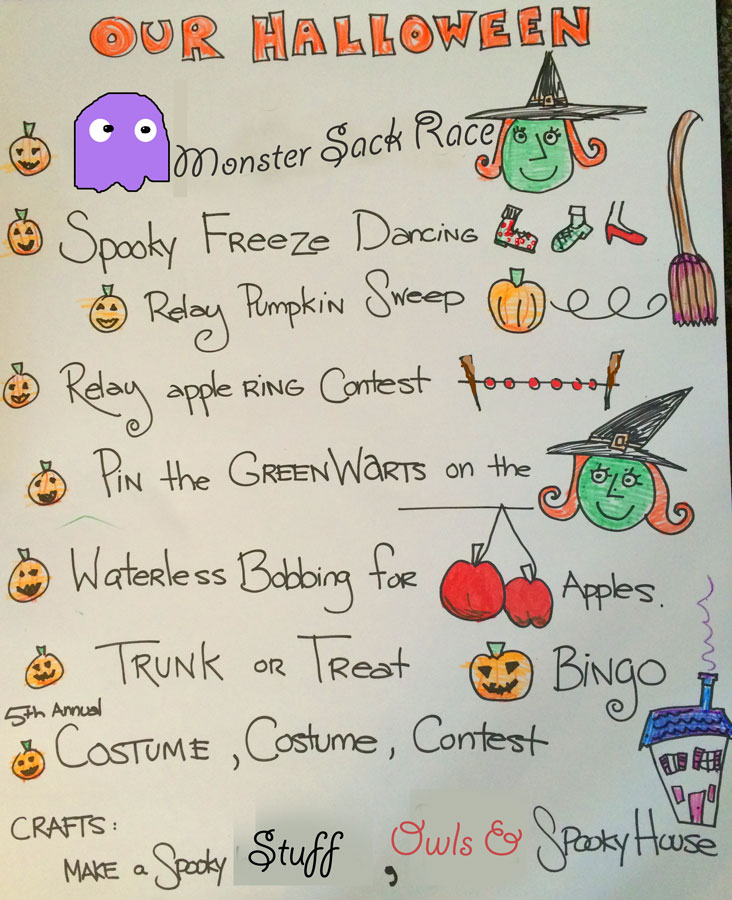 OUR HALLOWEEN
Monster Sack Race
Spooky Freeze Dancing
Relay Pumpkin Sweep
Relay apple RING Contest
PIN the GREEN WARTS on the
Waterless Bobbing for Apples.
TRUNK OR Treat BINGO
5th Annual
COSTUME, Costume, Contest
CRAFTS:
MAKE a Spooky Stuff, Owls & Spooky House